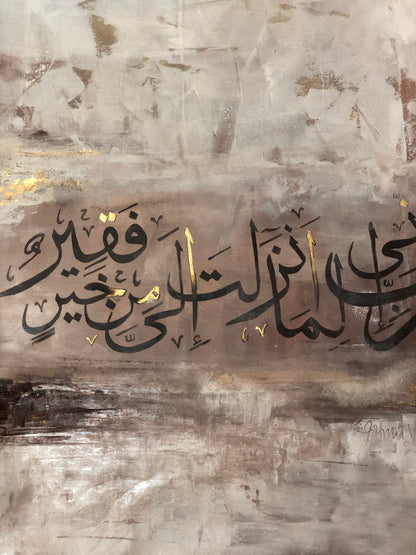 رَبِّ إِنِّى لِمَا اَنزَلتَ إِلَىَّ مِن خَيرٍ فَقِير